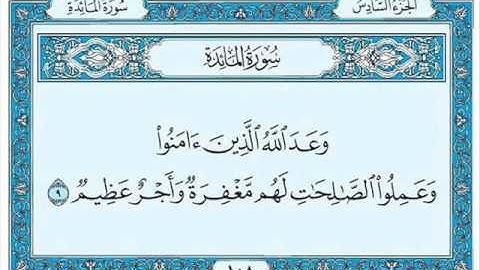 الجزء السادس
سورة المائدة
سُورَةُ المَائِدَةِ
وَعَدَ اللَّهُ الَّذِينَ ءَامَنُوا
وَعَمِلُوا الصَّالِحَاتِ لَهُم مَّغْفِرَةٌ وَأَجْرٌ عَظِيمٌ ٩
١٠٨